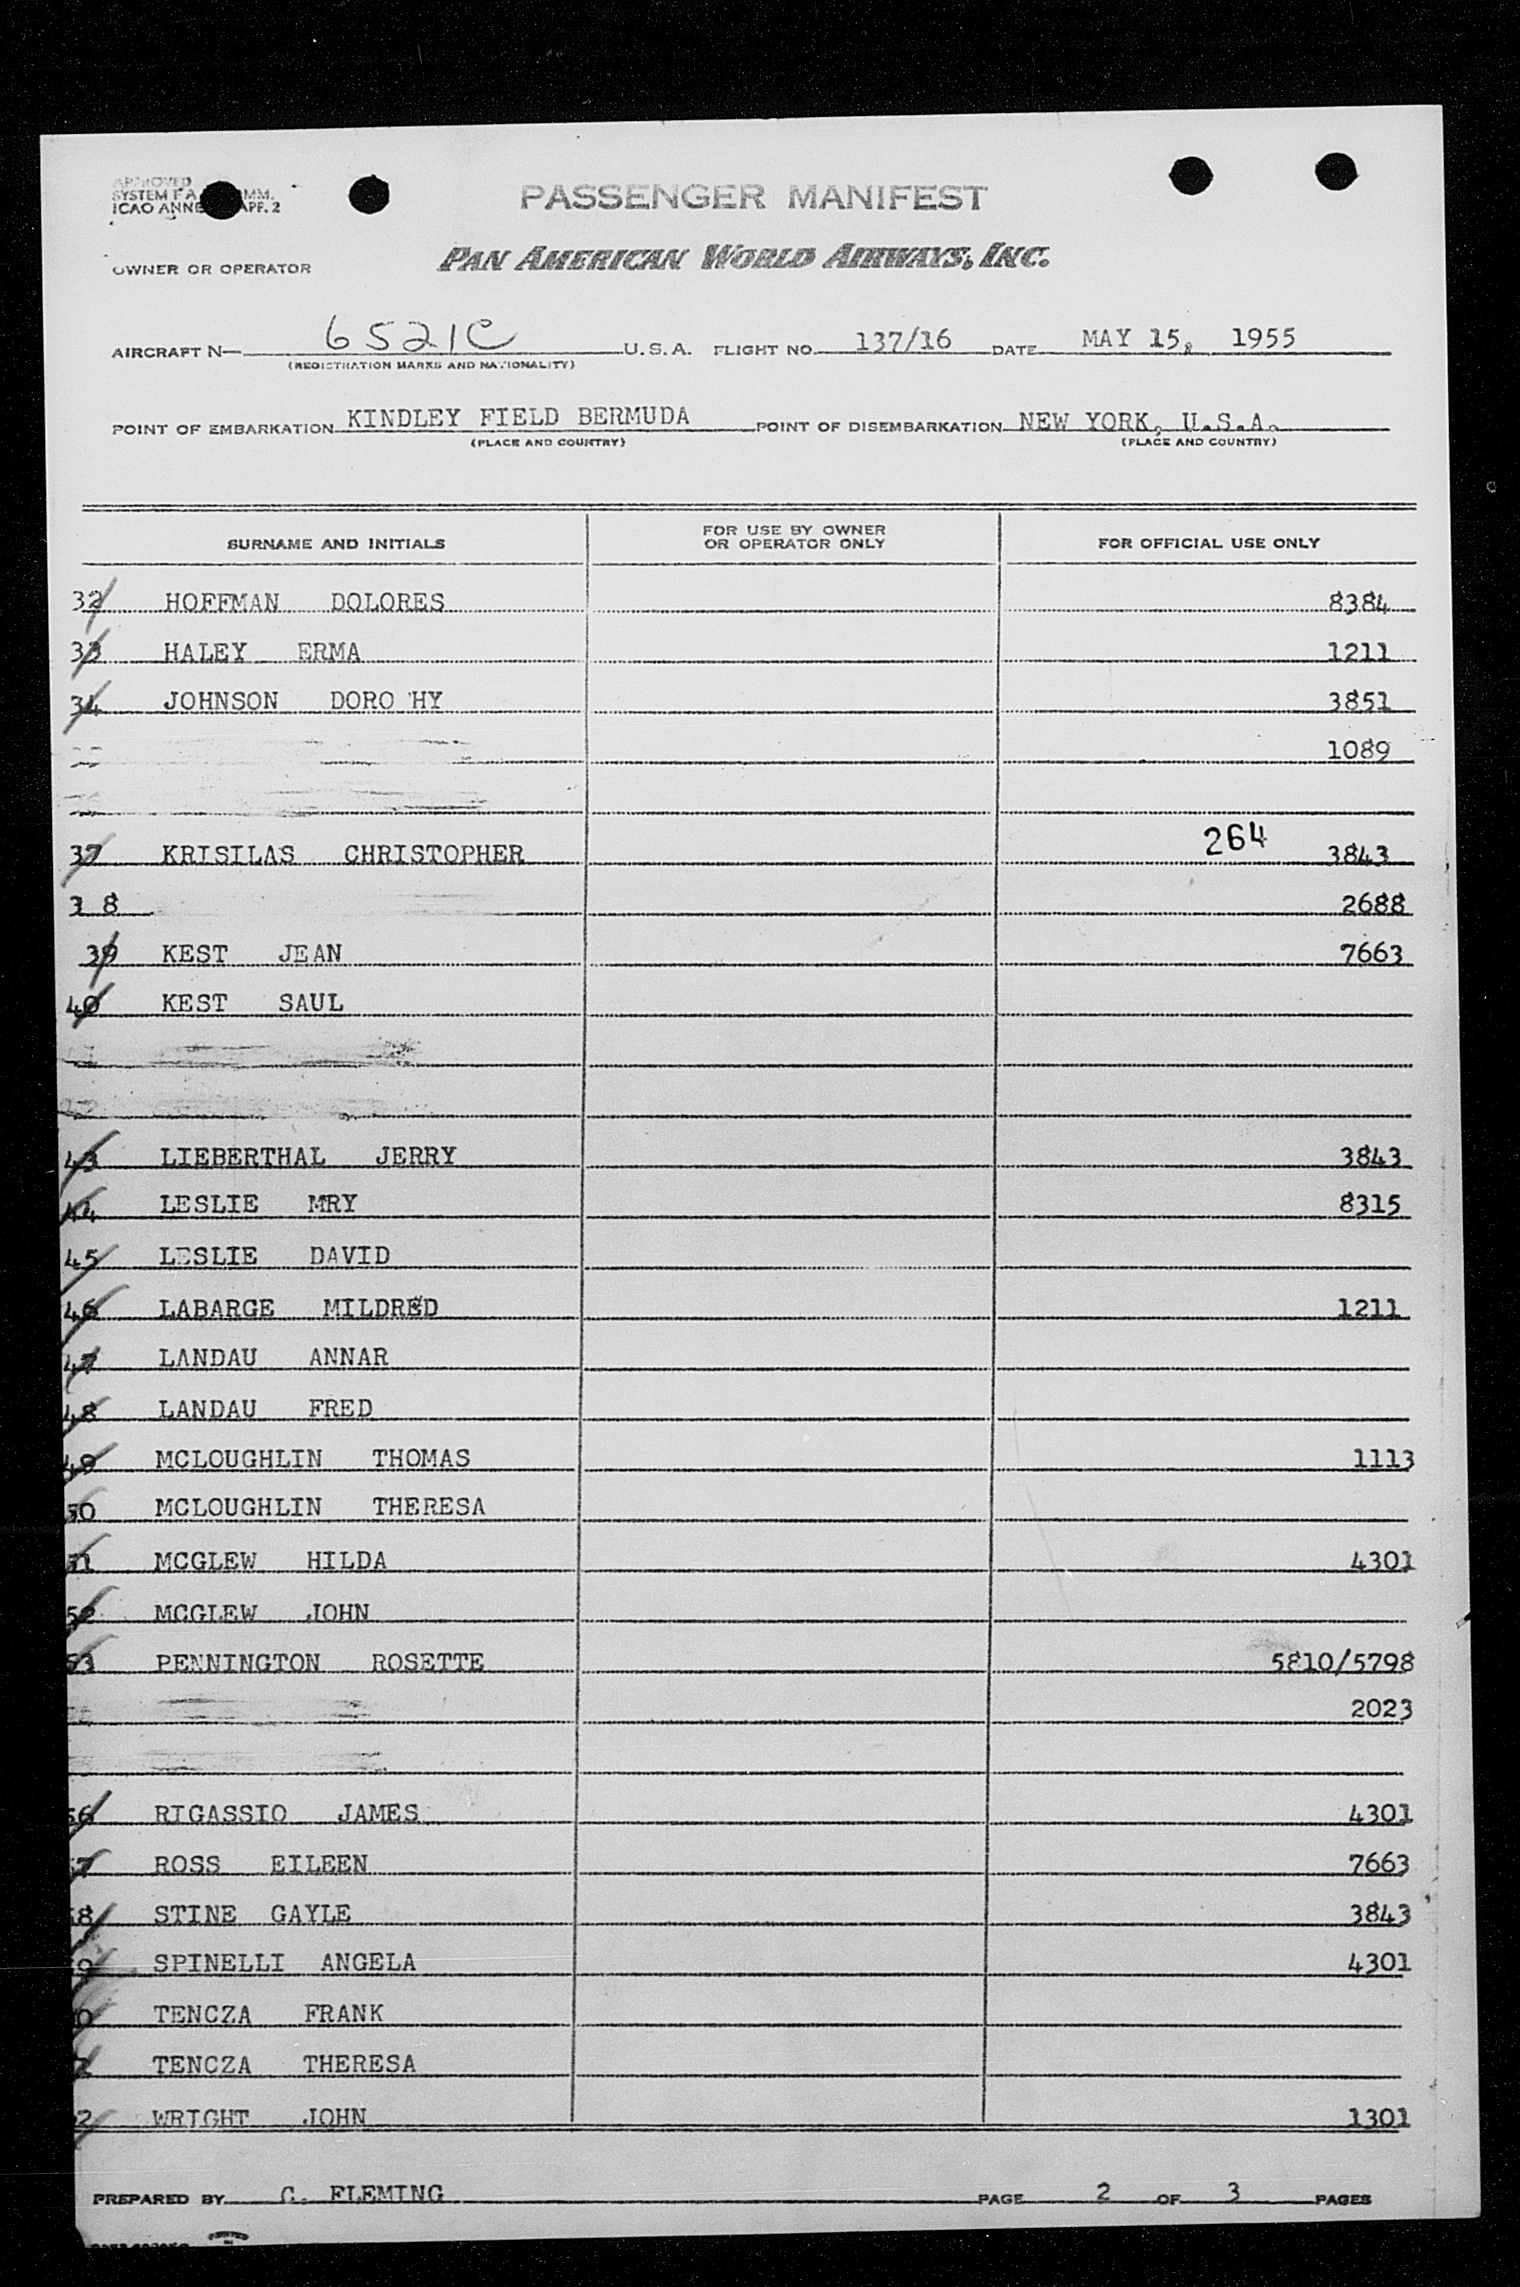 APPROVED
SYSTEM F A MM.
ICAO ANNE APP. 2
PASSENGER MANIFEST
OWNER OR OPERATOR PAN AMERICAN WORLD AIRWAYS, INC.
AIRCRAFT N— 6521C U.S.A. FLIGHT NO. 137/16 DATE MAY 15, 1955
(REGISTRATION MARKS AND NATIONALITY)
POINT OF EMBARKATION KINDLEY FIELD BERMUDA POINT OF DISEMBARKATION NEW YORK, U.S.A.
(PLACE AND COUNTRY) (PLACE AND COUNTRY)
SURNAME AND INITIALS FOR USE BY OWNER OR OPERATOR ONLY FOR OFFICIAL USE ONLY
32 HOFFMAN DOLORES 8384
33 HALEY ERMA 1211
34 JOHNSON DORO'HY 3851
1089
264
37 KRISILAS CHRISTOPHER 3843
3 8 2688
39 KEST JEAN 7663
40 KEST SAUL
43 LIEBERTHAL JERRY 3843
44 LESLIE MRY 8315
45 LESLIE DAVID
46 LABARGE MILDRED 1211
47 LANDAU ANNAR
48 LANDAU FRED
49 MCLOUGHLIN THOMAS 1113
50 MCLOUGHLIN THERESA
51 MCGLEW HILDA 4301
52 MCGLEW JOHN
53 PENNINGTON ROSETTE 5810/5798
2023
56 RIGASSIO JAMES 4301
7 ROSS EILEEN 7663
8 STINE GAYLE 3843
9 SPINELLI ANGELA 4301
0 TENCZA FRANK
TENCZA THERESA
2 WRIGHT JOHN 1301
PREPARED BY C. FLEMING PAGE 2 OF 3 PAGES